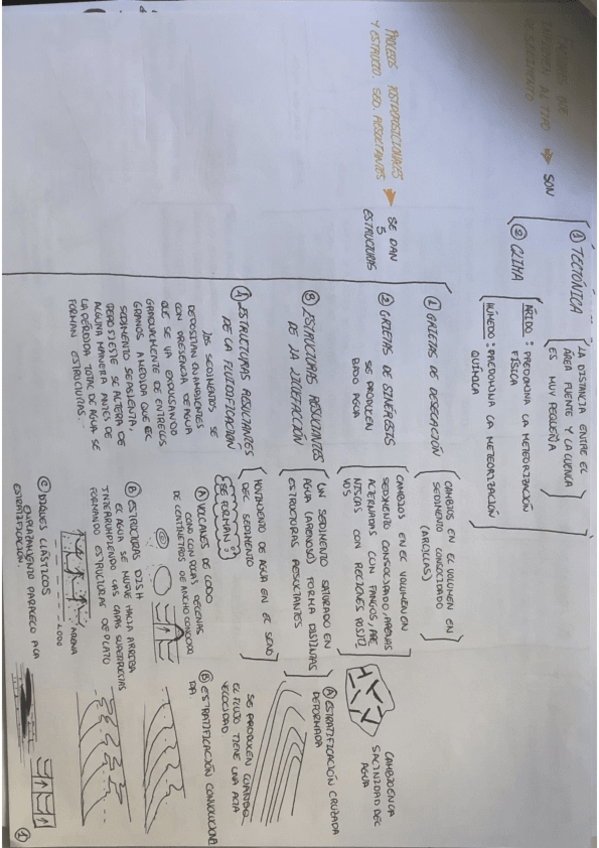 FACTORES QUE
INFLUYEN AL TIPO
DE SEDIMENTO
SON
① TECTÓNICA
LA DISTANCIA ENTRE EL
ÁREA FUENTE Y LA CUENCA
ES MUY PEQUEÑA
② CLIMA
ÁRIDO : PREDOMINA LA METEORIZACIÓN
FÍSICA
HÚMEDO : PREDOMINA LA METEORIZACIÓN
QUÍMICA
PROCESOS POSTDEPOSICIONALES
Y ESTRUCTU. SED. RESULTANTES
SE DAN
5
ESTRUCTURAS
① GRIETAS DE DESECACIÓN
CAMBIOS EN EL VOLUMEN EN
SEDIMENTO CONSOLIDADO
(ARCILLAS)
② GRIETAS DE SINÉRESIS
SE PRODUCEN
BAJO AGUA
CAMBIOS EN EL VOLUMEN EN
SEDIMENTO CONSOLIDADO, ARENAS
ALTERNADAS CON FANGOS,
CON
CAMBIO EN LA
SALINIDAD DEL
AGUA
③ ESTRUCTURAS RESULTANTES
DE LA LICUEFACCIÓN
UN SEDIMENTO SATURADO EN
AGUA (ARENOSO) FORMA DISTINTAS
ESTRUCTURAS RESULTANTES
Ⓐ ESTRATIFICACIÓN CRUZADA
DEFORMADA
SE PRODUCEN CUANDO
EL FLUJO TIENE UNA ALTA
VELOCIDAD
Ⓑ ESTRATIFICACIÓN CONVOLUCIONA
DA
④ ESTRUCTURAS RESULTANTES
DE LA FLUIDIFICACIÓN
LOS SEDIMENTOS SE
DEPOSITAN EN AMBIENTES
CON PRESENCIA DE AGUA
QUE SE VA EXPULSANDO
GRADUALMENTE DE ENTRE LOS
GRANOS A MEDIDA QUE EL
SEDIMENTO SE ASIENTA,
DEPÓSI ESTE SE ALTERA DE
ALGUNA MANERA ANTES DE
LA PÉRDIDA TOTAL DE AGUA SE
FORMAN ESTRUCTURAS.
MOVIMIENTO DE AGUA EN EL SENO
DEL SEDIMENTO
SE FORMAN:
Ⓐ VOLCANES DE LODO
CONO CON POCAS DECENAS
DE CENTÍMETROS DE ANCHO CONOCIDO
Ⓑ ESTRUCTURAS DISH
EL AGUA SE MUEVE HACIA ARRIBA
INTERRUMPIENDO LAS CAPAS SUPERPUESTAS
FORMANDO ESTRUCTURAS DE PLATO
ARENA
LODO
Ⓒ DIQUES CLÁSTICOS
EMPLAZAMIENTO PARALELO A LA
ESTRATIFICACIÓN.
①